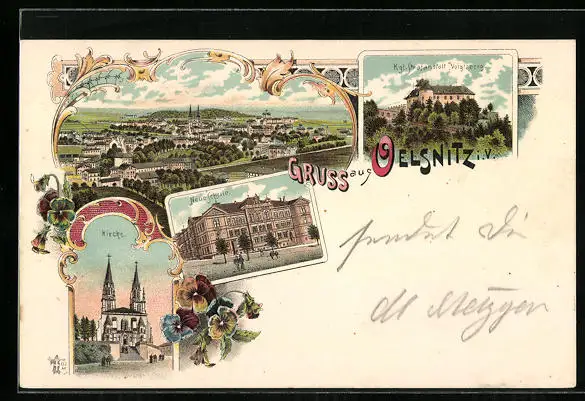 Kgl. Strafanstalt Voigtsberg
GRUSS aus OELSNITZ i. V.
Neue Schule.
Kirche.
sendet Dir
Metzger